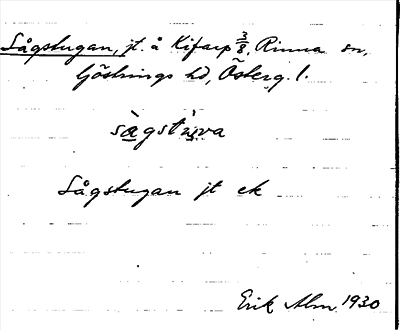 Sågstugan, jt. å Kifarp 3/8, Rinna sn,
Göstrings hd, Österg. l.
sàgstùva
Sågstugan jt ek
Erik Alm 1930